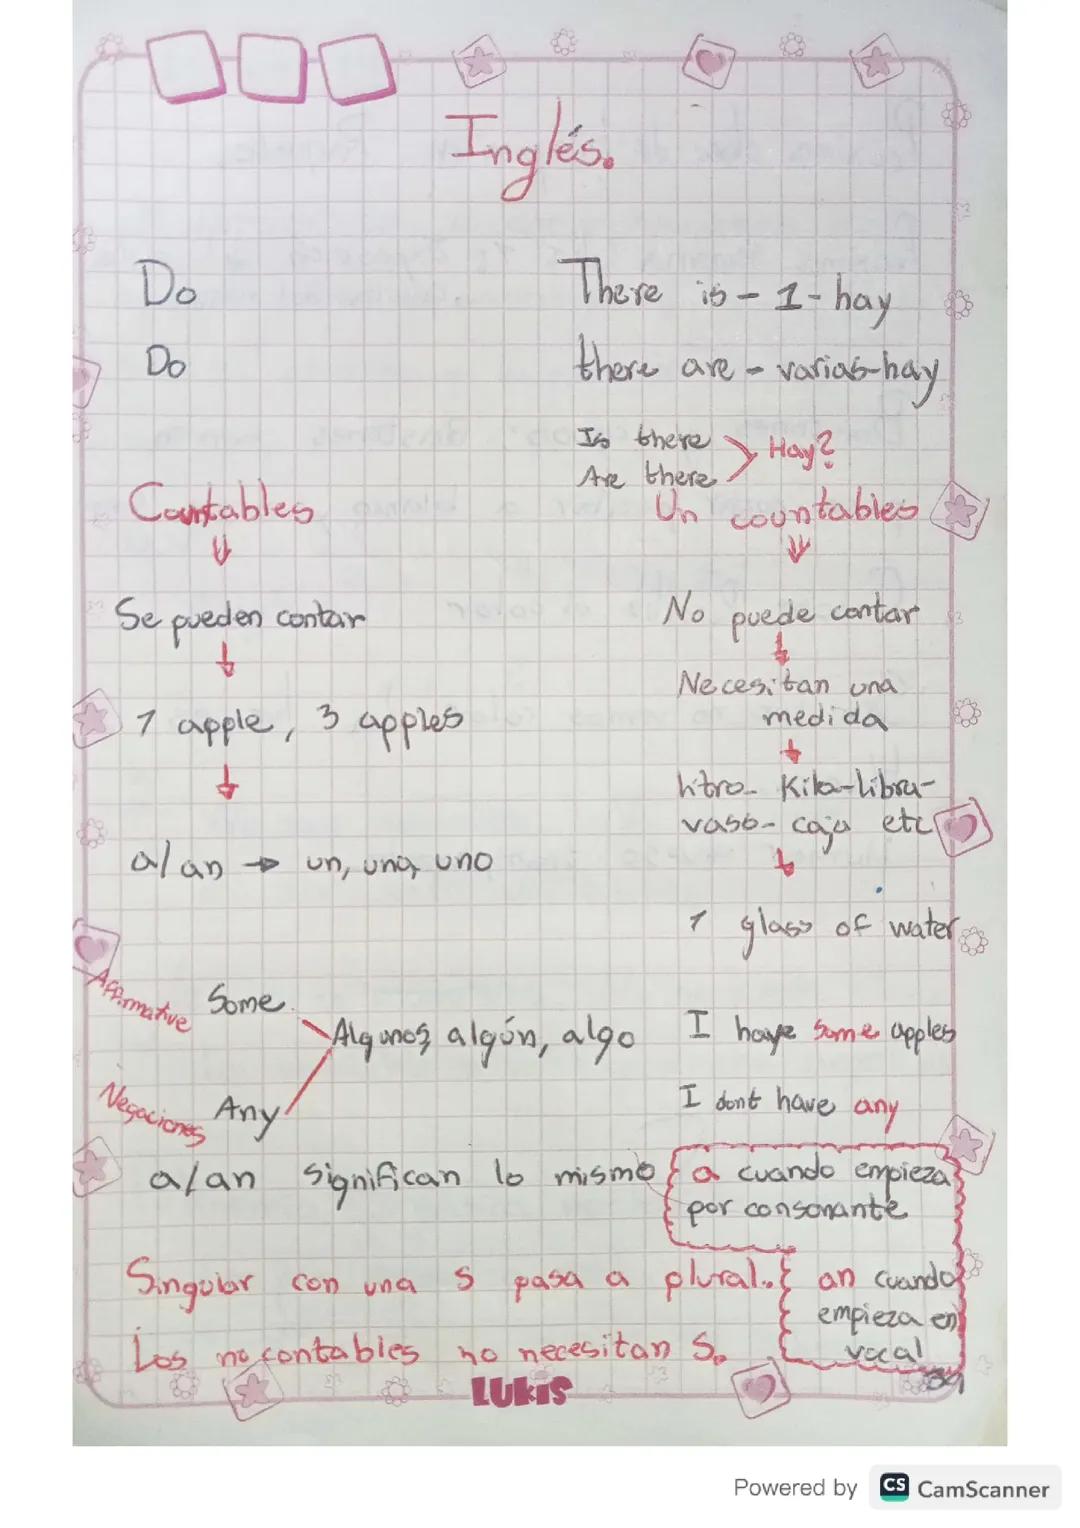 Inglés.
Do
There is - 1 - hay
Do
there are - varias - hay
Is there
Are there
Hay?
Countables
Un countables
Se pueden contar
No puede contar
Necesitan una
medida
1 apple, 3 apples
litro - Kilo - libra -
vaso - caja etc
a/an → un, una, uno
1 glass of water
Affirmative
Some
Algunos, algún, algo
I have some apples
Negaciones
Any
I dont have any
a/an significan lo mismo
a cuando empieza
por consonante
Singular con una S pasa a plural.
an cuando
empieza en
vocal
Los no contables no necesitan S.
LUKIS
Powered by CS CamScanner